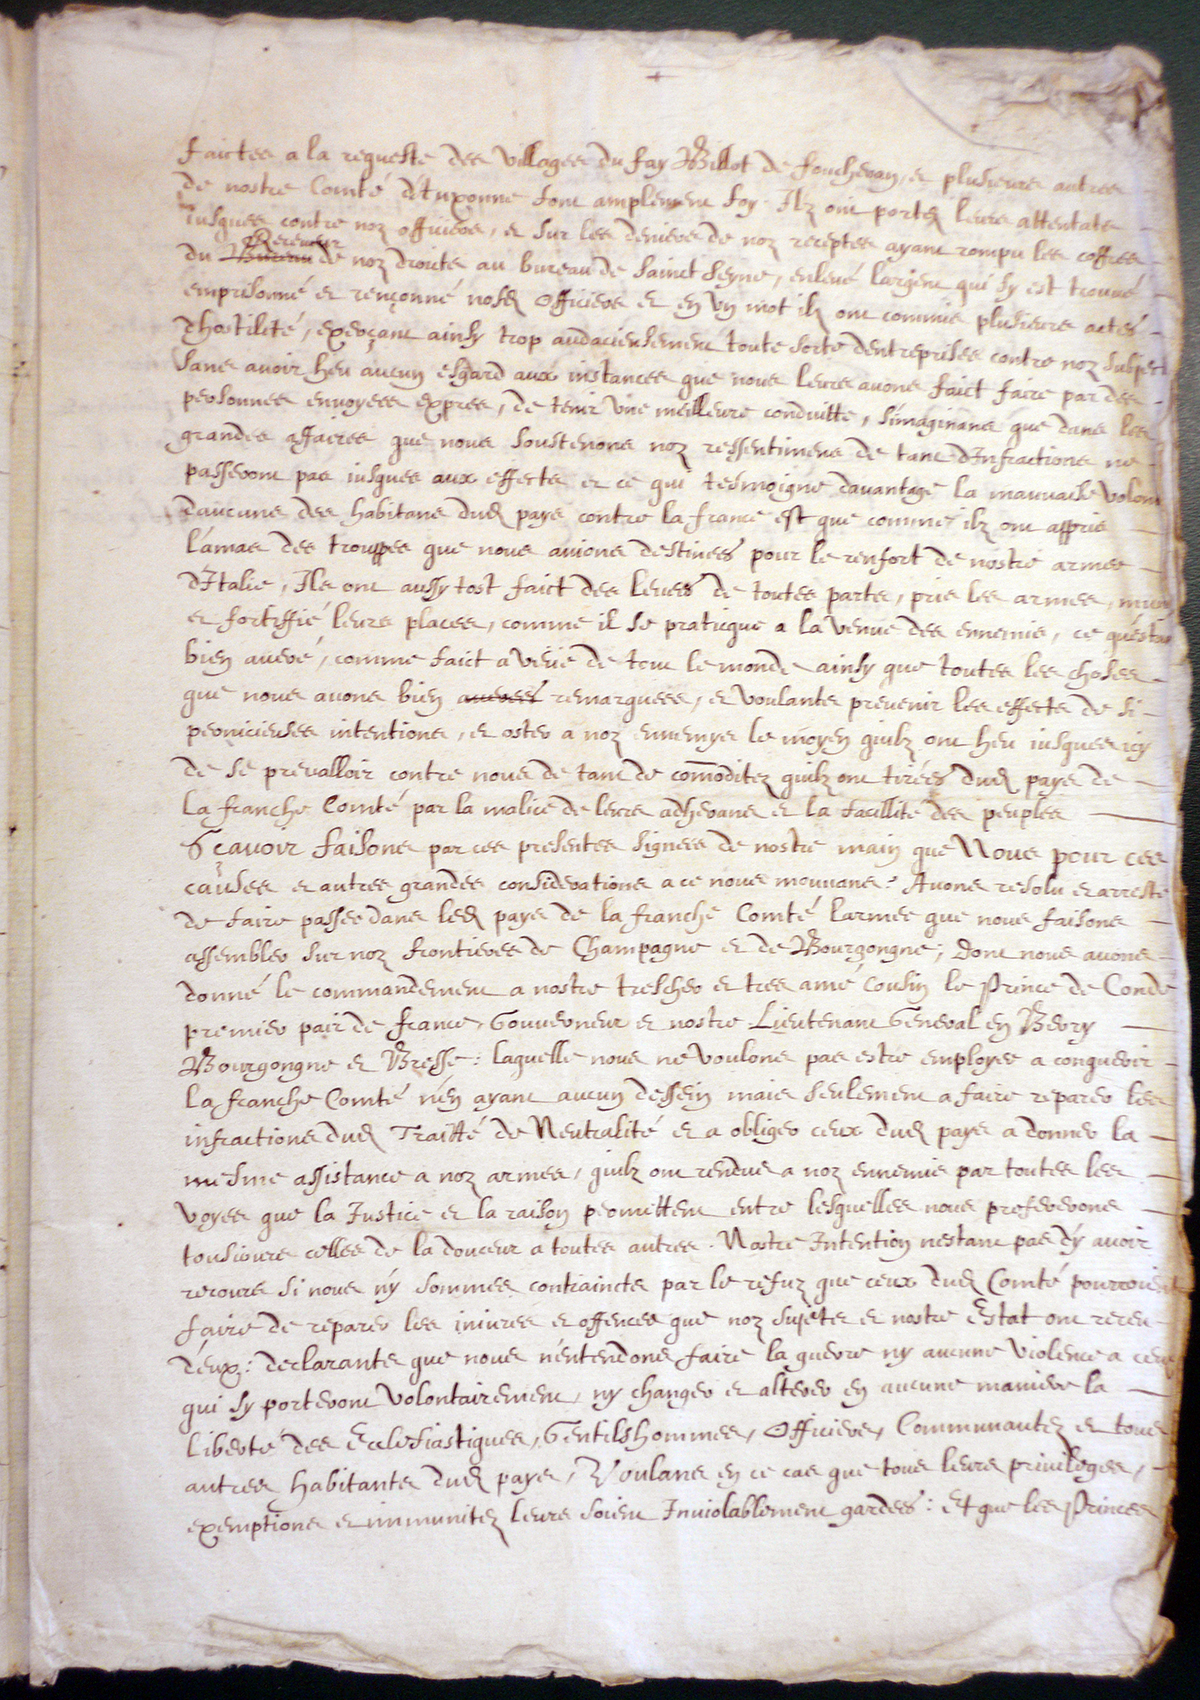 faictes a la requeste des villages du fay Billot de fouchevan, et plusieurs autres
de nostre Comté d'Auxonne font amplement foy. Ilz ont portez leurs attentatz
jusques contre noz officiers, et sur les deniers de noz receptes ayant rompu les coffres
Receveur
du Bureau de noz droits au bureau de Sainct Seyne, enlevé l'argent qui sy est trouvé
emprisonné et rençonné nosd officiers et en un mot ilz ont commis plusieurs actes
dhostilité, exerçant ainsy trop audacieusement toute sorte dentreprises contre noz subject
sans avoir heu aucun esgard aux instances que nous leurs avons faict faire par des
personnes envoyees expres, de tenir une meilleure conduitte, s'imaginans que dans les
grandes affaires que nous soustenons noz ressentimens de tant d'Infractions ne
passeront pas jusques aux effects et ce qui tesmoigne davantage la mauvaise volon
daucuns des habitans dud pays contre la france est que comme ilz ont appris
l'amas des trouppes que nous avions destinees pour le renfort de nostre armee
d'Italie, Ils ont aussy tost faict des levees de toutes parts, pris les armes, muny
et fortiffié leurs places, comme il se praticque a la venue des ennemis, ce qu'estan
bien averé, comme faict a veüe de tout le monde ainsy que toutes les choses
que nous avons bien averees remarquees, et voulants prevenir les effects de si
pernicieuses intentions, et oster a noz ennemys le moyen quilz ont heu jusques icy
de se prevalloir contre nous de tant de commoditez quilz ont tirées dud pays de
la franche Comté par la malice de leurs adherans et la facillité des peuples
Scavoir faisons par ces presentes signees de nostre main que Nous pour ces
causes et autres grandes considerations a ce nous mouvans. Avons resolu et arresté
de faire passer dans led pays de la franche Comté larmee que nous faisons
assembler sur noz frontieres de Champagne et de Bourgongne; dont nous avons
donné le commandement a nostre trescher et tres amé Cousin le Prince de Condé
premier pair de france, Gouverneur et nostre Lieutenant General en Berry
Bourgongne et Bresse: laquelle nous ne voulons pas estre employee a conquerir
la franche Comté n'en ayant aucun dessein mais seulement a faire reparer les
infractions dud Traitté de Neutralité et a obliger ceux dud pays a donner la
mesme assistance a noz armes, quilz ont rendue a noz ennemis par toutes les
voyes que la Justice et la raison permettent entre lesquelles nous prefererons
tousiours celles de la douceur a toutes autres. Nostre Intention nestant pas d'y avoir
recours si nous n'y sommes contraincts par le refuz que ceux dud Comté pourroient
faire de reparer les injures et offences que noz sujets et nostre Estat ont receu
d'eux: declarants que nous n'entendons faire la guerre ny aucune violence a ceux
qui sy porteront volontairement, ny changer et alterer en aucune maniere la
Liberté des Ecclesiastiques, Gentilshommes, Officiers, Communautez et tous
autres habitants dud pays, Voulans en ce cas que tous leurs privileges,
exemptions et immunitez leurs soient Inviolablement gardees: Et que les Princes